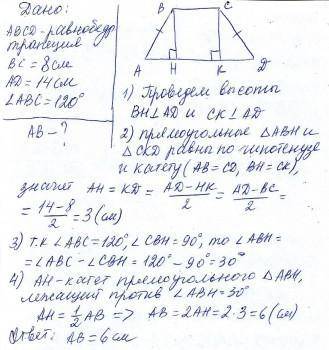 Дано:
ABCD - равнобедр.
трапеция
BC = 8см
AD = 14см
∠ABC = 120°
AB - ?
B C
A H K D
1) Проведем высоты
BH⊥AD и CK⊥AD
2) прямоугольные △ABH и
△CKD равны по гипотенузе
и катету (AB = CD, BH = CK),
значит AH = KD = AD-HK/2 = AD-BC/2 =
= 14-8/2 = 3 (см)
3) Т.к ∠ABC = 120°, ∠CBH = 90°, то ∠ABH =
= ∠ABC - ∠CBH = 120° - 90° = 30°
4) AH - катет прямоугольного △ABH,
лежащий против ∠ABH = 30°
AH = 1/2 AB => AB = 2AH = 2·3 = 6 (см)
Ответ: AB = 6см